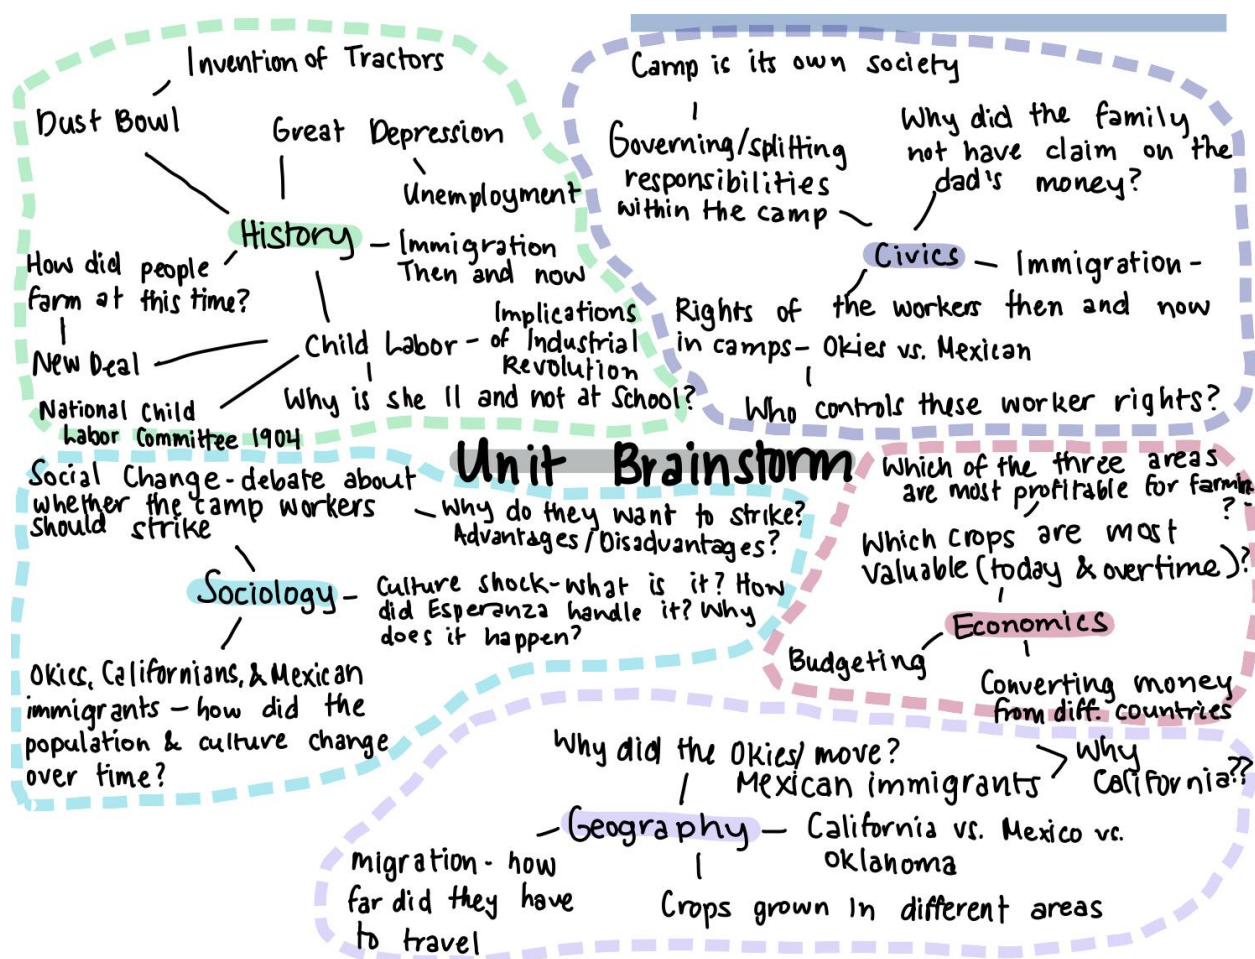 Invention of Tractors
Dust Bowl
Great Depression
Unemployment
History
Immigration
Then and now
How did people
farm at this time?
New Deal
Child Labor -
Implications
of Industrial
Revolution
Why is she 11 and not at School?
National Child
Labor Committee 1904
Camp is its own society
Governing/splitting
responsibilities
within the camp
Why did the family
not have claim on the
dad's money?
Civics
Immigration -
Rights of the workers then and now
in camps - Okies vs. Mexican
Who controls these worker rights?
Unit Brainstorm
Social Change - debate about
whether the camp workers
should strike
Why do they want to strike?
Advantages/Disadvantages?
Sociology
Culture shock - what is it? How
did Esperanza handle it? Why
does it happen?
Okies, Californians, & Mexican
immigrants - how did the
population & culture change
over time?
Which of the three areas
are most profitable for farmin
?-
Which crops are most
valuable (today & overtime)?
Economics
Budgeting
Converting money
from diff. countries
Why did the Okies/ move?
Mexican immigrants
Why
California??
Geography
California vs. Mexico vs.
Oklahoma
migration - how
far did they have
to travel
Crops grown in different areas